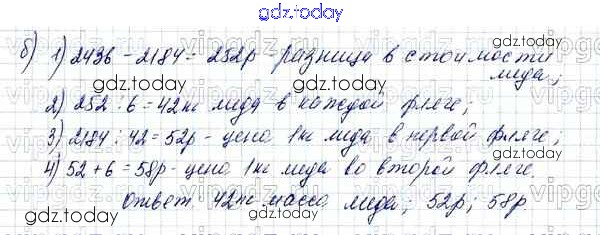 gdz.today
б) 1) 2436 - 2184 = 252р - разница в стоимости
мёда;
gdz.today gdz.today
2) 252 : 6 = 42кг мёда в каждой фляге;
3) 2184 : 42 = 52р - цена 1кг мёда в первой фляге;
gdz.today gdz.today
4) 52 + 6 = 58р - цена 1кг мёда во второй фляге.
Ответ: 42кг масса мёда; 52р; 58р.
gdz.today gdz.today